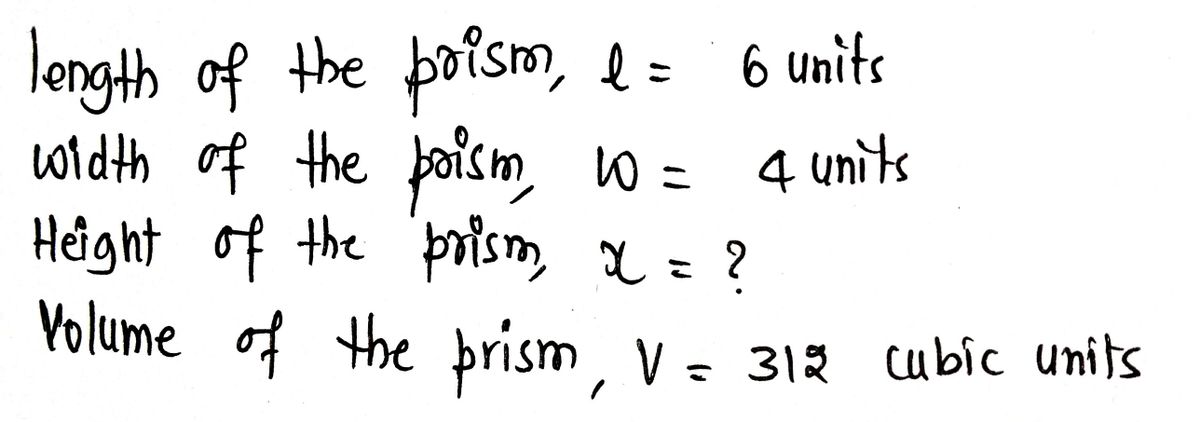 length of the prism, l = 6 units
width of the prism, w = 4 units
Height of the prism, x = ?
Volume of the prism, V = 312 cubic units